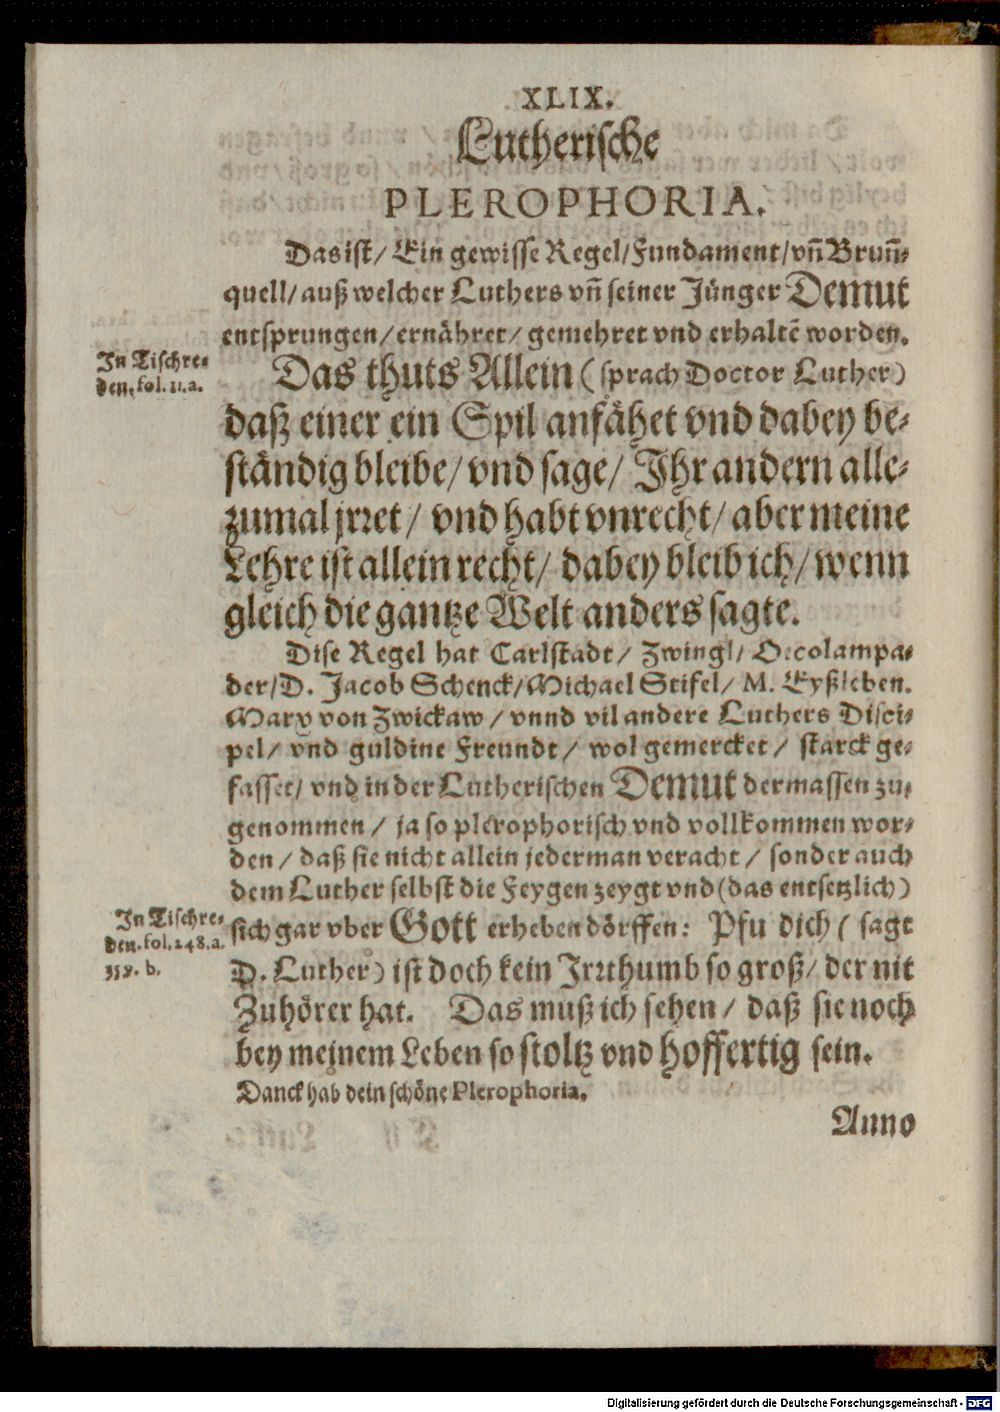 XLIX.
Lutherische
PLEROPHORIA.
Das ist/ Ein gewisse Regel/Fundament/vñ Bruñ-
quell/ auß welcher Luthers vñ seiner Jünger Demut
entsprungen/ernähret/ gemehret vnd erhaltẽ worden.
In Tischre-
den. fol. 11.a.
Das thuts Allein (sprach Doctor Luther)
daß einer ein Spil anfähet vnd dabey be-
ständig bleibe/ vnd sage/ Ihr andern alle-
zumal jrret/ vnd habt vnrecht/ aber meine
Lehre ist allein recht/ dabey bleib ich/ wenn
gleich die gantze Welt anders sagte.
Dise Regel hat Carlstadt/ Zwingl/ Oecolampa-
der/D. Jacob Schenck/Michael Stifel/ M. Eyßleben.
Marx von Zwickaw/ vnnd vil andere Luthers Disci-
pel/ vnd guldine Freundt/ wol gemercket/ starck ge-
fasset/ vnd in der Lutherischen Demut dermassen zu-
genommen/ ja so plerophorisch vnd vollkommen wor-
den/ daß sie nicht allein jederman veracht/ sonder auch
dem Luther selbst die Feygen zeygt vnd (das entsetzlich)
In Tischre-
den. fol. 248.a.
358. b.
sich gar vber Gott erheben dörffen: Pfu dich (sagt
D. Luther) ist doch kein Irrthumb so groß/ der nit
Zuhörer hat. Das muß ich sehen/ daß sie noch
bey meinem Leben so stoltz vnd hoffertig sein.
Danck hab dein schöne Plerophoria.
Anno
Digitalisierung gefördert durch die Deutsche Forschungsgemeinschaft - DFG